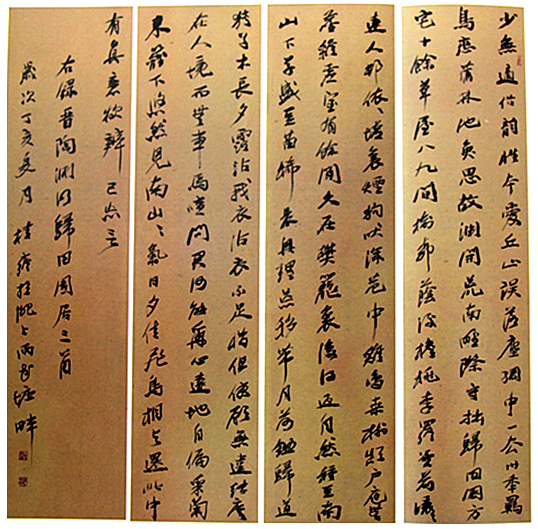 少無適俗韻性本愛丘山誤落塵網中一去卅年羈
鳥戀舊林池魚思故淵開荒南野際守拙歸田園方
宅十餘草屋八九間榆柳蔭後檐桃李羅堂前曖
遠人邨依〻墟里煙狗吠深巷中雞鳴桑樹顛戶庭無
塵雜虛室有餘閒久在樊籠裏復得返自然種豆南
山下草盛豆苗稀晨興理荒穢帶月荷鋤歸道
狹草木長夕露沾我衣沾衣不足惜但使願無違結廬
在人境而無車馬喧問君何能爾心遠地自偏采菊
東籬下悠然見南山〻氣日夕佳飛鳥相與還此中
有真意欲辨已忘言
右錄晉陶淵明歸田園居三首
歲次丁亥夏月